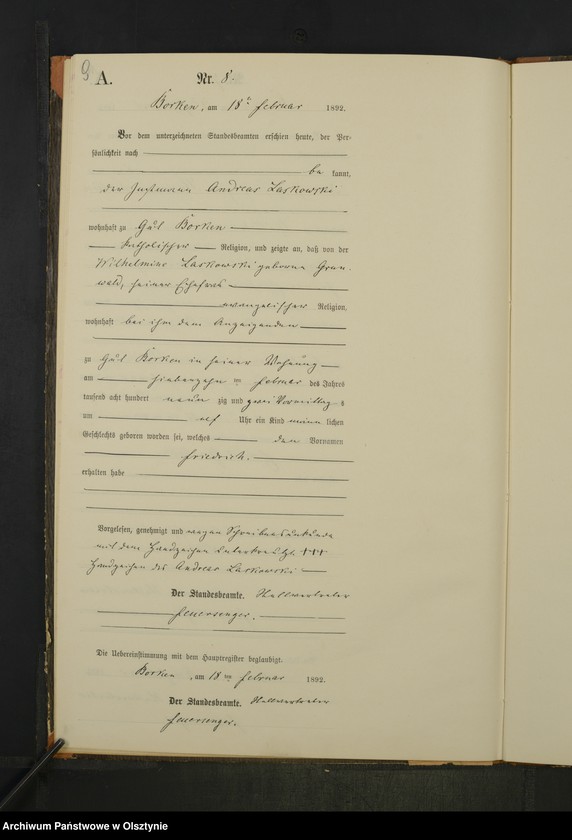 9
A.
Nr. 8.
Borken, am 18ten Februar 1892.
Vor dem unterzeichneten Standesbeamten erschien heute, der Per-
sönlichkeit nach
be kannt,
der Instmann Andreas Laskowski
wohnhaft zu Gut Borken
katholischer Religion, und zeigte an, daß von der
Wilhelmine Laskowski geborne Grun-
wald, seiner Ehefrau
evangelischer Religion,
wohnhaft bei ihm dem Anzeigenden
zu Gut Borken in seiner Wohnung
am siebenzehn ten Februar des Jahres
tausend acht hundert neun zig und zwei Vormittag s
um elf Uhr ein Kind männ lichen
Geschlechts geboren worden sei, welches den Vornamen
Friedrich.
erhalten habe
Vorgelesen, genehmigt und wegen Schreibensunkunde
mit dem Handzeichen unterkreuzt. +++
Handzeichen des Andreas Laskowski
Der Standesbeamte. Stellvertreter
Feuersenger.
Die Uebereinstimmung mit dem Hauptregister beglaubigt.
Borken, am 18ten Februar 1892.
Der Standesbeamte. Stellvertreter
Feuersenger.
Archiwum Państwowe w Olsztynie